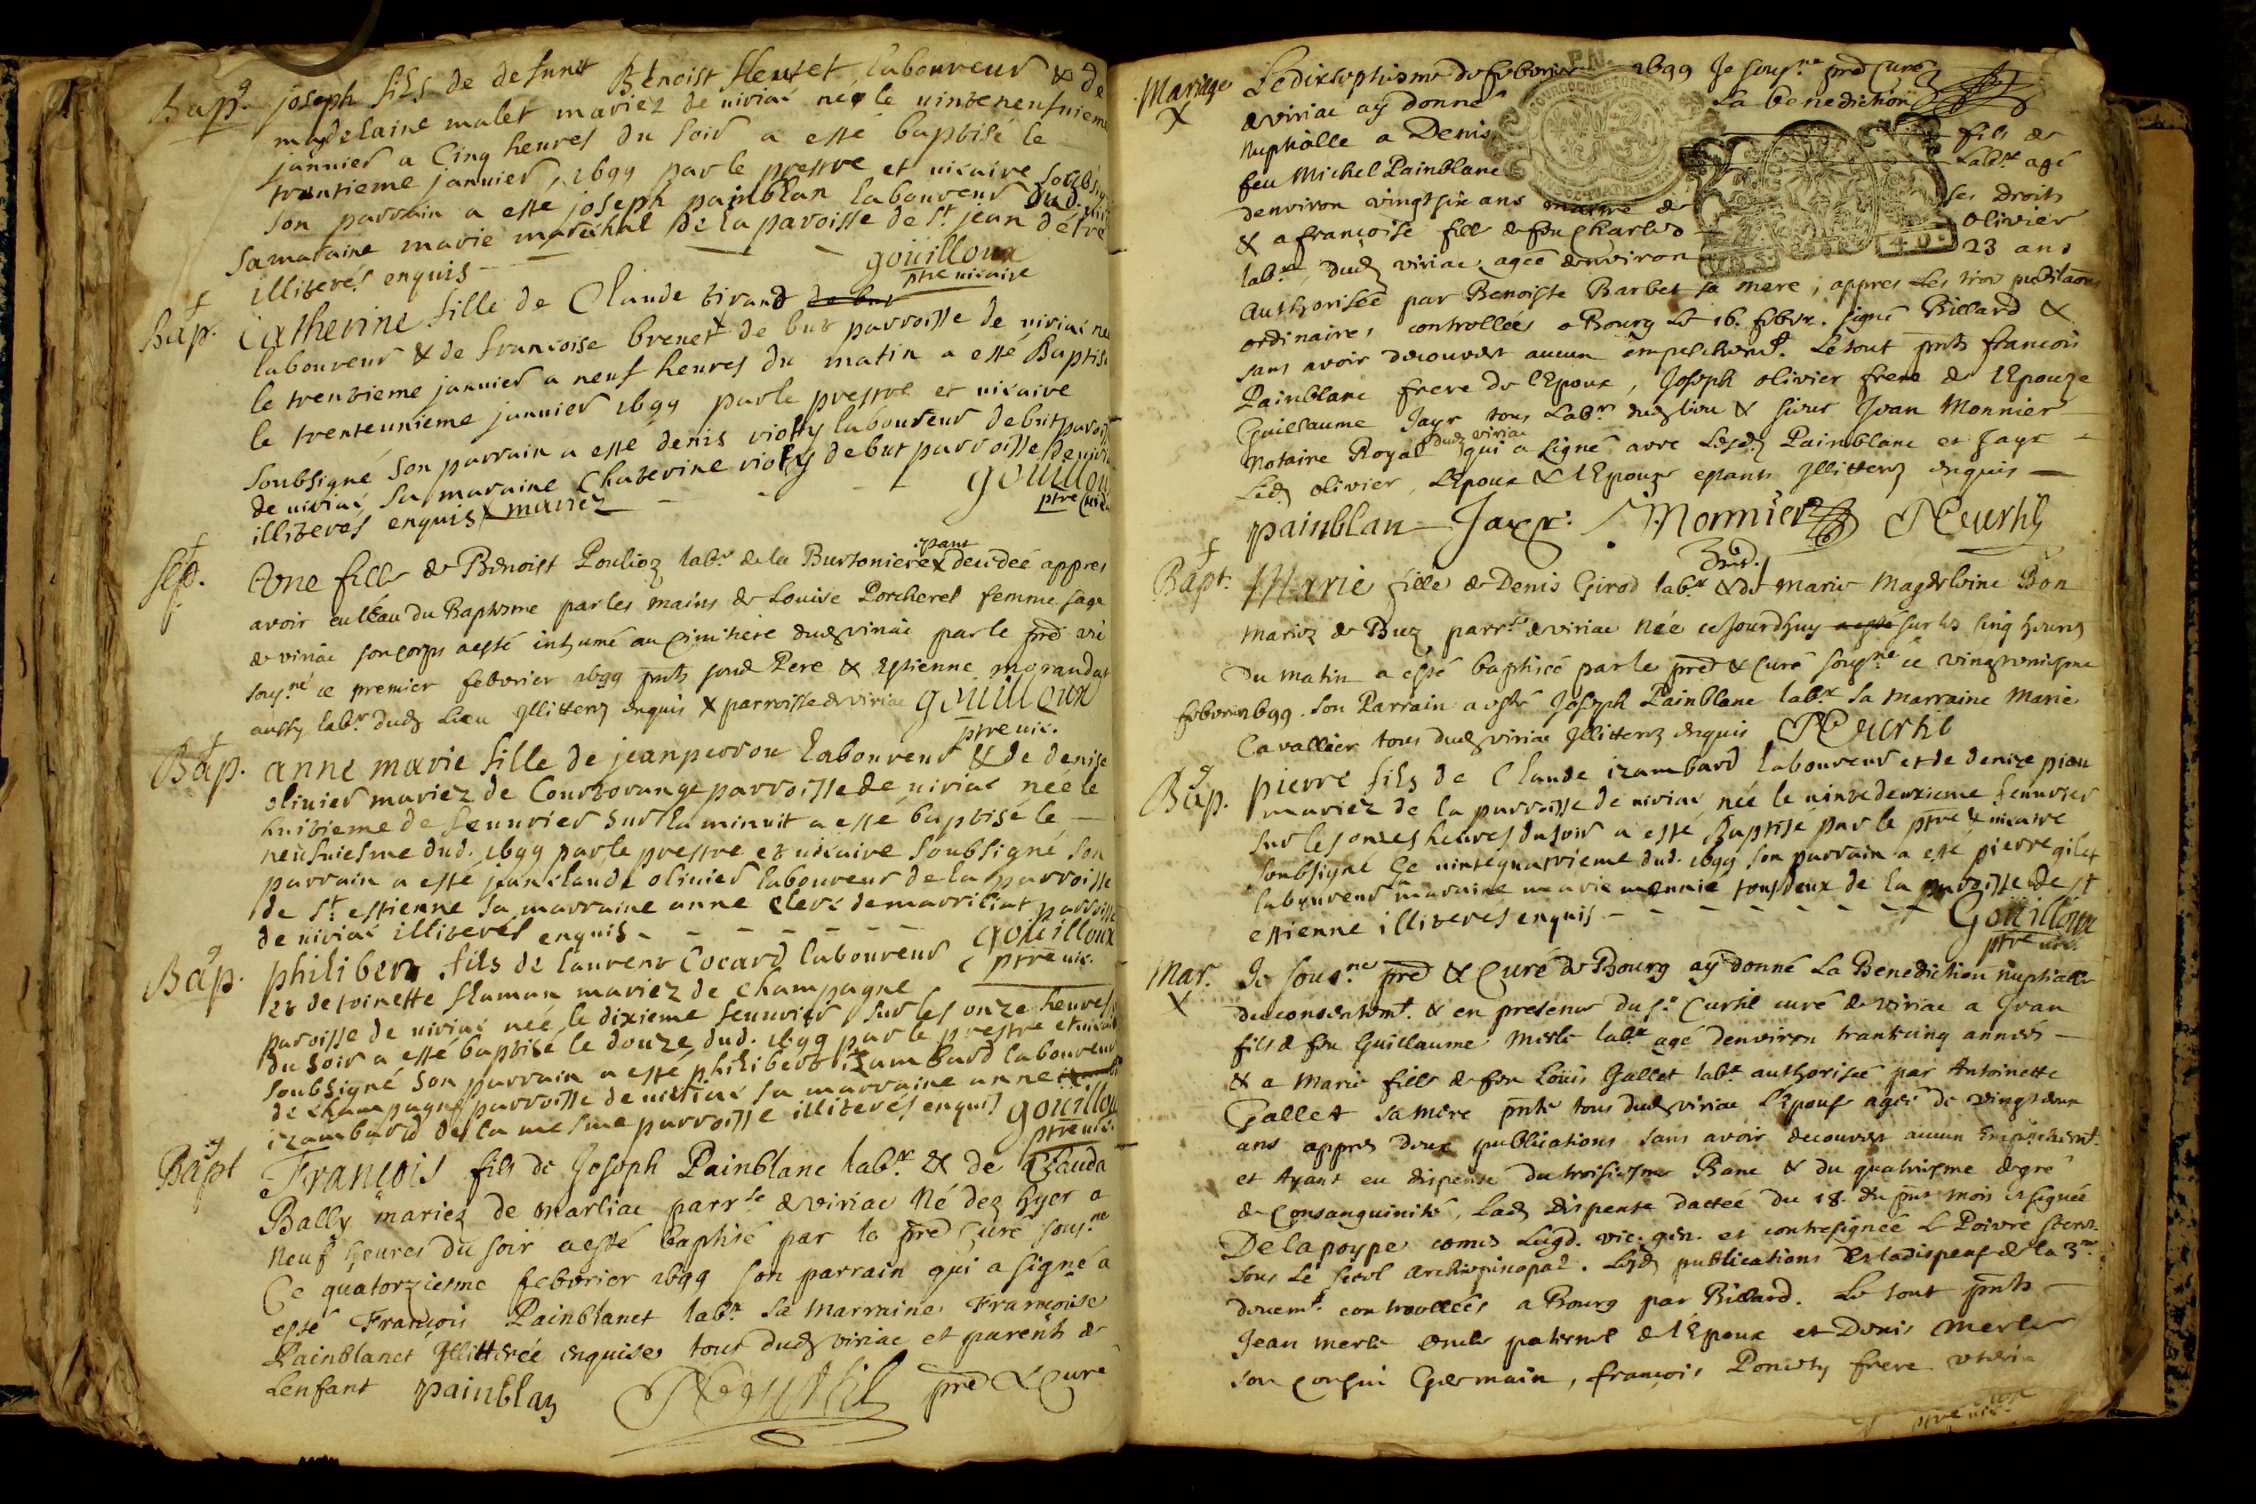 Bap. joseph fils de defunct Benoist fleutet laboureur & de
madelaine malet mariez de viriac né le vinteneufvieme
janvier a Cinq heures du soir a esté baptisé le
trentieme janvier, 1699 par le prestre et vicaire soubsigné
son parrain a esté joseph painblan laboureur dud. viriac
sa maraine marie maréchal de la paroisse de st. jean détré
illiterés enquis - - -
goüilloux
ptre vicaire
Bap. Catherine fille de Claude tirand de but
laboureur & de francoise brenet de but parroisse de viriac née
le trentieme janvier a neuf heures du matin a esté Baptisé
le trenteunieme janvier 1699 par le prestre et vicaire
soubsigné son parrain a esté denis violly laboureur de but paroisse
de viriac sa maraine Chaterine violly de but parroisse de viriac
illiteres enquis & mariez - - -
goüilloux
ptre vicaire
Sep. Une fille de Benoist Pouilioz labr. de la Burtoniere x décédeé appres
avoir eu léau du Baptesme par les mains de Louise Porcheret femme sage
de viriac son corps aesté inhumé au cimitiere dud. viriac par le pred vic
sousné ce premier febvrier 1699 pnts son Pere & Estienne morandat
aussy labr. dud. Lieu Jllitterez enquis x parroisse de viriac goüilloux
ptre vic.
Bap. anne marie fille de jean perrou laboureur & de denise
olivier mariez de Courtorange parroisse de viriac née le
huitieme de feuvrier sur la minuit a esté baptisé le —
neufviesme dud. 1699 par le prestre et vicaire soubsigné son
parrain a esté jean claude olivier laboureur de la parroisse
de st. estienne sa marraine anne Clerc de marriliat parroisse
de viriac illiterés enquis - - - - - - goüilloux
ptre vic.
Bap. philibert fils de laurent Cocard laboureur
et de toinette flaman mariez de Champagne
paroisse de viriac né le dixieme feuvrier sur les onze heures
du soir a esté baptisé le douze dud. 1699 par le prestre et vicaire
soubsigné son parrain a esté philibert izambard laboureur
de Champagne parroisse de viriac sa marraine anne
izambard de la mesme parroisse illiterés enquis goüilloux
ptre vic.
Bapt François fils de Joseph Painblanc labr. & de Clauda
Bally mariez de marliac parrsse de viriac Né dez hyer a
Neuf heures du soir aesté baptisé par le pred Curé sousné
Ce quatorziesme febvrier 1699 son parrain qui a signé a
esté François Painblanct labr. Sa Marraine Françoise
Painblanct Jllitterée enquise tous dud. viriac et parents de
Lenfant painblan pred & Curé
Mariage Le dixseptiesme de febvrier 1699 Je sousné pred Curé
de viriac ay donné La benediction
Nuptialle a Denis fils de
feu Michel Painblanc Labr. agé
denviron vingtsix ans ses Droits
& a françoise fille de feu Charles Olivier
labr. dud. viriac agée denviron 23 ans
Authorisée par Benoiste Barbet sa mere, appres Les trois publications
ordinaires controllées a Bourg Le 16. febvr. signé Billard &
sans avoir decouvert aucun empeschemt. Le tout pnts francois
Painblanc frere de lEpoux, Joseph Olivier frere de lEpouze
Guillaume Jayr tous Labrs. dud. lieu & sieur Jean Monnier
Notaire Royal dud. viriac qui a signé avec Lesd. Painblanc et Jayr -
Led. Olivier, LEpoux & lEpouze estants Jllitterez enquis —
painblan - Jayr. Monnier
Bapt. Marie fille de Denis Girod labr. & de Marie Magdelaine Bon
Mariez de Buz parrsse de viriac Née ce Jourdhuy aesté sur les cinq heures
Du matin a esté baptisée par le pred & Curé sousné ce vingtroisiesme
febvrier 1699. Son Parrain a esté Joseph Painblanc labr. Sa Marraine Marie
Cavallier tous dud. viriac Jllitterez enquis
Bap. pierre fils de Claude izambard laboureur et de denize pion
mariez de la parroisse de viriac née le vintedeuxieme feuvrier
sur les onzes heures du soir a esté Baptisé par le ptre & vicaire
soubsigné Ce vintequatrieme dud. 1699 son parrain a esté pierre gilet
laboureur maraine marie mennie tous deux de la parroisse de st
estienne illiterés enquis - - - - - - - Goüilloux
ptre vic.
Mar. Je sousné pred & Curé de Bourg ay donné La Benediction nuptialle
du consentemt. & en presence du sr. Curtil curé de viriac a Jean
fils de feu Guillaume Merle labr. agé denviron trantecinq années —
& a Marie fille de feu Loüis Gallet labr. authorisée par Antoinette
Gallet Sa Mere pnte tous dud. viriac LEpouse agée de vingtdeux
ans appres deux publications sans avoir decouvert aucun Empeschemt.
et Ayant eu dispense du troisiesme Banc & du quatriesme degré
de Consanguinité, Lad. dispense dactée du 18. du pnt mois et signée
De la poype comes Lugd. vic. gen. et contresignée L Poivre secret.
sous Le Scel Archiepiscopal. Lesd. publications & la dispense de la 3me
deuemt. controllées a Bourg par Billard. Le tout pnts —
Jean Merle oncle paternel de lEpoux et Denis Merle
son Cousin Germain, François Poncety frere uterin